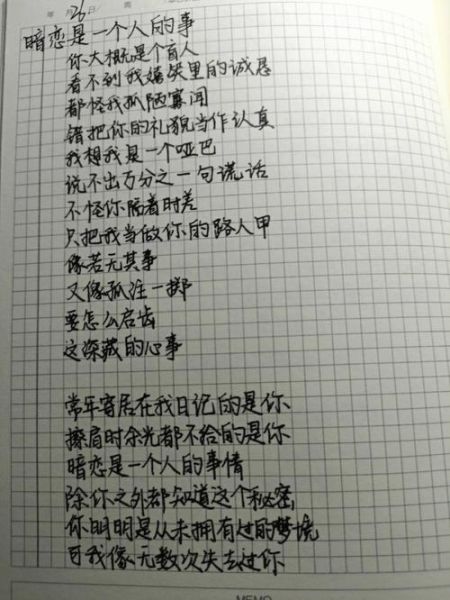 26
暗恋是一个人的事
你大概是个盲人
看不到我嬉笑里的诚恳
都怪我孤陋寡闻
错把你的礼貌当作认真
我想我是一个哑巴
说不出万分之一句谎话
不怪你隔着时差
只把我当做你的路人甲
像若无其事
又像孤注一掷
要怎么启齿
这深藏的心事
常年寄居在我日记的是你
擦肩时余光都不给的是你
暗恋是一个人的事情
除你之外都知道这个秘密
你明明是从未拥有过的梦境
可我像无数次失去过你
MEMO